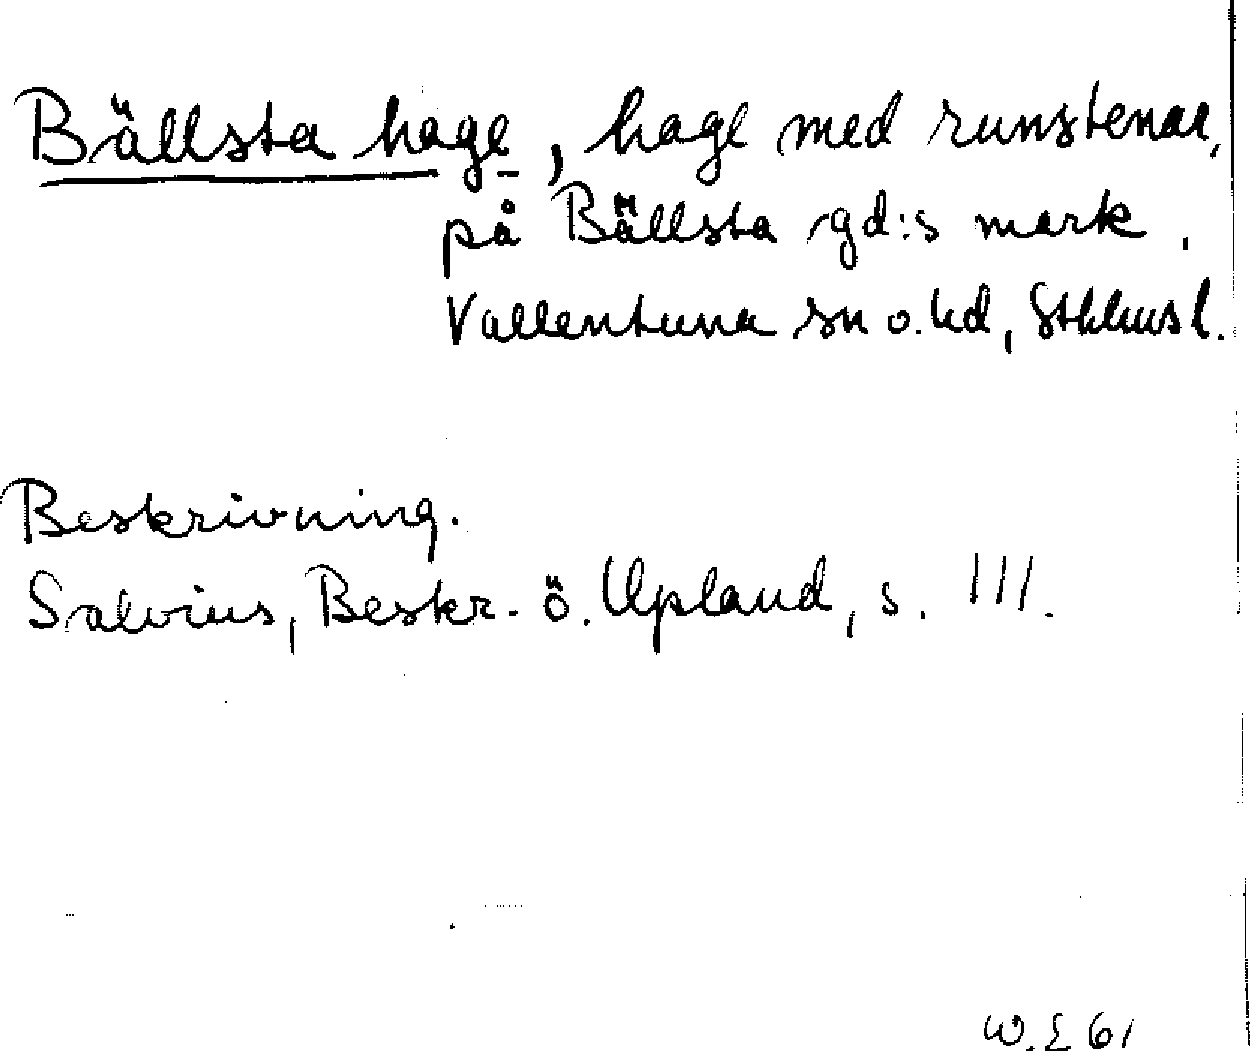 Bällsta hage, hage med runstenar,
på Bällsta gd:s mark.
Vallentuna sn o. hd, Sthlms l.
Beskrivning.
Salvius, Beskr. ö. Upland, s. 111.
W. E 61